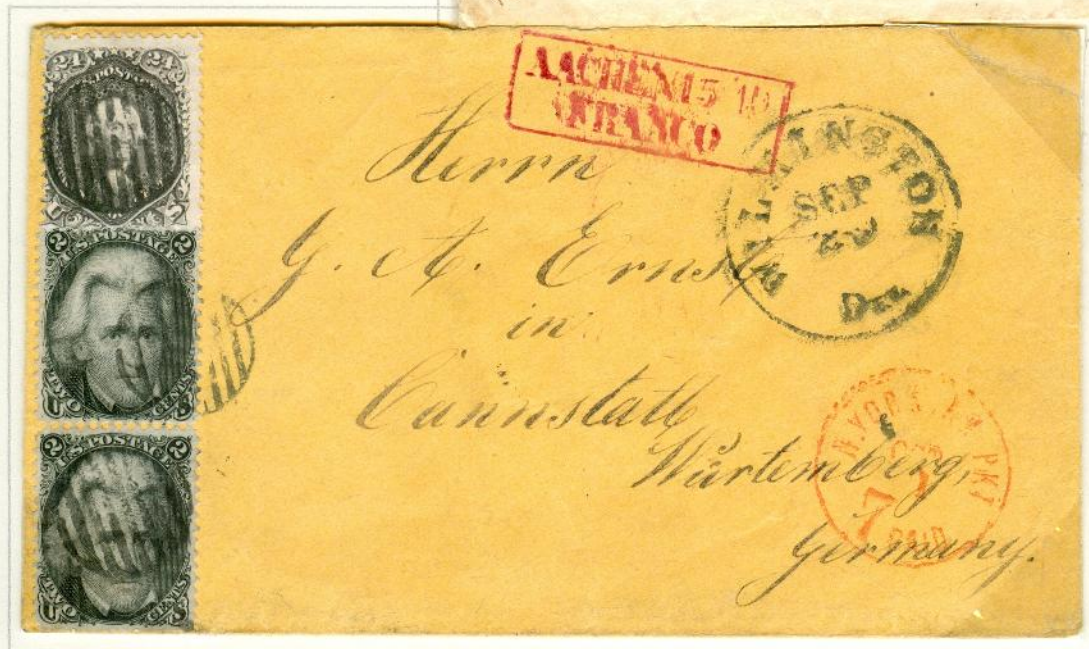 24 24
U.S. POSTAGE
U S
2 U.S. POSTAGE 2
TWO CENTS
U S
2 U.S. POSTAGE 2
TWO CENTS
U S
AACHEN 15 10
FRANCO
WILMINGTON
SEP
Del.
Herrn
G. A. Ernst
in
Cannstatt
Würtemberg,
Germany.
N. YORK AM. PKT
7
PAID